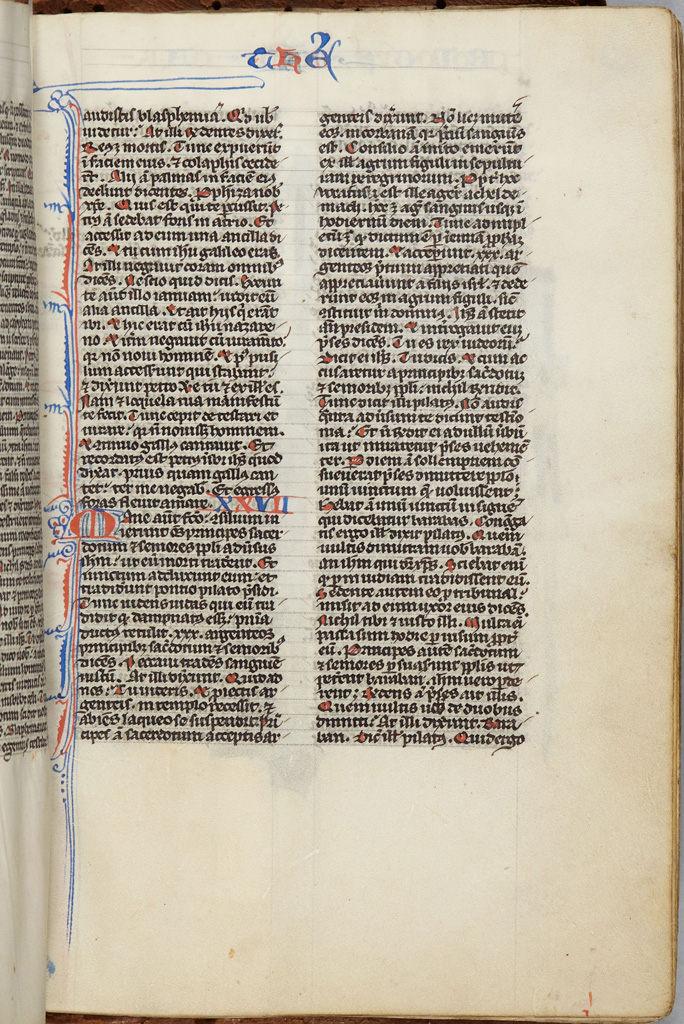 theus
audistis blasphemiā. Qͥd uob̄
uidetur? At illi r̄ndentes dixeř.
Reus ē mortis. Tunc expuerūt
ī faciem eius. ⁊ colaphis cecide
rūt. Alij ā palmas in faciē ei᷒
dederunt dicentes. Ꝓphiza nob̄
xp̄e. Quis est qui te ꝑcussit. Pe
trus ā sedebat foris in atrio. Et
accessit ad eum una ancilla di
cēs. Et tu cum ihū galileo eras.
At ille negauit coram omnib᷒
dicēs. Nescio quid dicis. Exeun
te aūt illo ianuam: uidit eū
alia ancilla. Et ait hijs q̄ erāt
ibi. Et hic erat cū ihū nazare
no. Et itm̄ negauit cū iuramēto.
qꝫ non noui hominē. Et p᷒ pusil
lum accesserunt qui stabant:
⁊ dixerūt petro. Uere tu ⁊ ex ill̄ es.
Nam ⁊ loquela tua manifestū
te facit. Tunc cepit detestari et
iurare: qꝫ nō nouiss; hominem.
Et ↄtinuo gallus cantauit. Et
recordatus est petrus ūbi ih̄u quod
dixerat. prius quam gallus can
tet: ter me negab̄. Et egressus
foras fleuit amare. XXVII
Mane aūt fcō: ↄsilium in
ierunt oēs principes sacer
dotum ⁊ seniores ppl̄i aduersus
ihm̄: ut eū morti traderēt. Et
uinctum adduxerunt eum: et
tradidunt pontio pilato p̄sidi.
Tunc uidens iudas qui eū tra
didit qͥ dampnatus ess;: pnīa
ductus retulit .xxx. argenteos
principib᷒ sacerdotum ⁊ seniorib᷒
dicēs. Peccaui tradēs sanguinē
iustū. At illi dixerūt. Quid ad
nos? Tu uideris. Et proiectis ar
genteis in templo recessit. ⁊
abiēs laqueo se suspendit. Prī
cipes ā sacerdotum acceptis ar
genteis dixerunt. Nō lic; mittē
eos in corbanā: qꝫ p̄tiū sanguīs
est. Consilio ā inito emerūt
ex ill̄ agrum figuli in sepultu
ram peregrinorum. Ppt̄ h̄
uocatus ē ille ager acheldē
mach. hoc ē ag̃ sanguinis usqꝫ ī
hodiernū diem. Tunc adimpl̄
etū ē qͥ dictum ē ꝑ ieremiā ppͪam
dicentem. Et acceperunt .xxx. ar
genteos p̄cium appreciati quē
appreciauerunt a filiis isrl̄. ⁊ dede
runt eos in agrum figuli. sic̄
ↄstituit m̄ dominus. Ihc̄ ā stetit
añ presidem. ⁊ interrogauit eū
p̄ses dicēs. Tu es rex iudeorū?
Dicit ei ih̄c. Tu dicis. Et cum ac
cusaretur a principib᷒ sacerdotū
⁊ seniorib᷒ ppl̄i: nichil r̄ndit.
Tunc dicit illi pilatus. Nō audis
quanta aduersum te dicunt testīo
nia? Et nō r̄ndit ei ad ullū ūbū:
ita ut miraretur p̄ses uehemen
ter. Per diem ā sollempnem cō
sueuerat p̄ses dimittere ppl̄o
unū uinctum quē uoluissent:
Habebat ā tunc uinctū insignē
qui dicebatur barabas. Congͤga
tis ergo ill̄ dixit pilatus. Quem
uultis dimittam uob̄ baraban:
an ihm̄ qui dr̄ xp̄s. Sciebat enī
qͥ ꝑ inuidiam tradidissent eū.
Sedente autem eo ꝓ tribunali:
misit ad eum uxor eius dicēs.
Nichil tibi ⁊ iusto illi. Multa eī
passa sum hodie ꝑ uisum ppt̄
eū. Principes aūt sacerdotum
⁊ seniores ꝑsuaserunt ppl̄is ut
peterēt baraban. ihm̄ uero ꝑde
rent. Rn̄dens ā p̄ses ait illis.
Quem uultis uob̄ de duobus
dimitti? At illi dixerunt. Bara
ban. Dic̄ ill̄ pilatus. Quid ergo